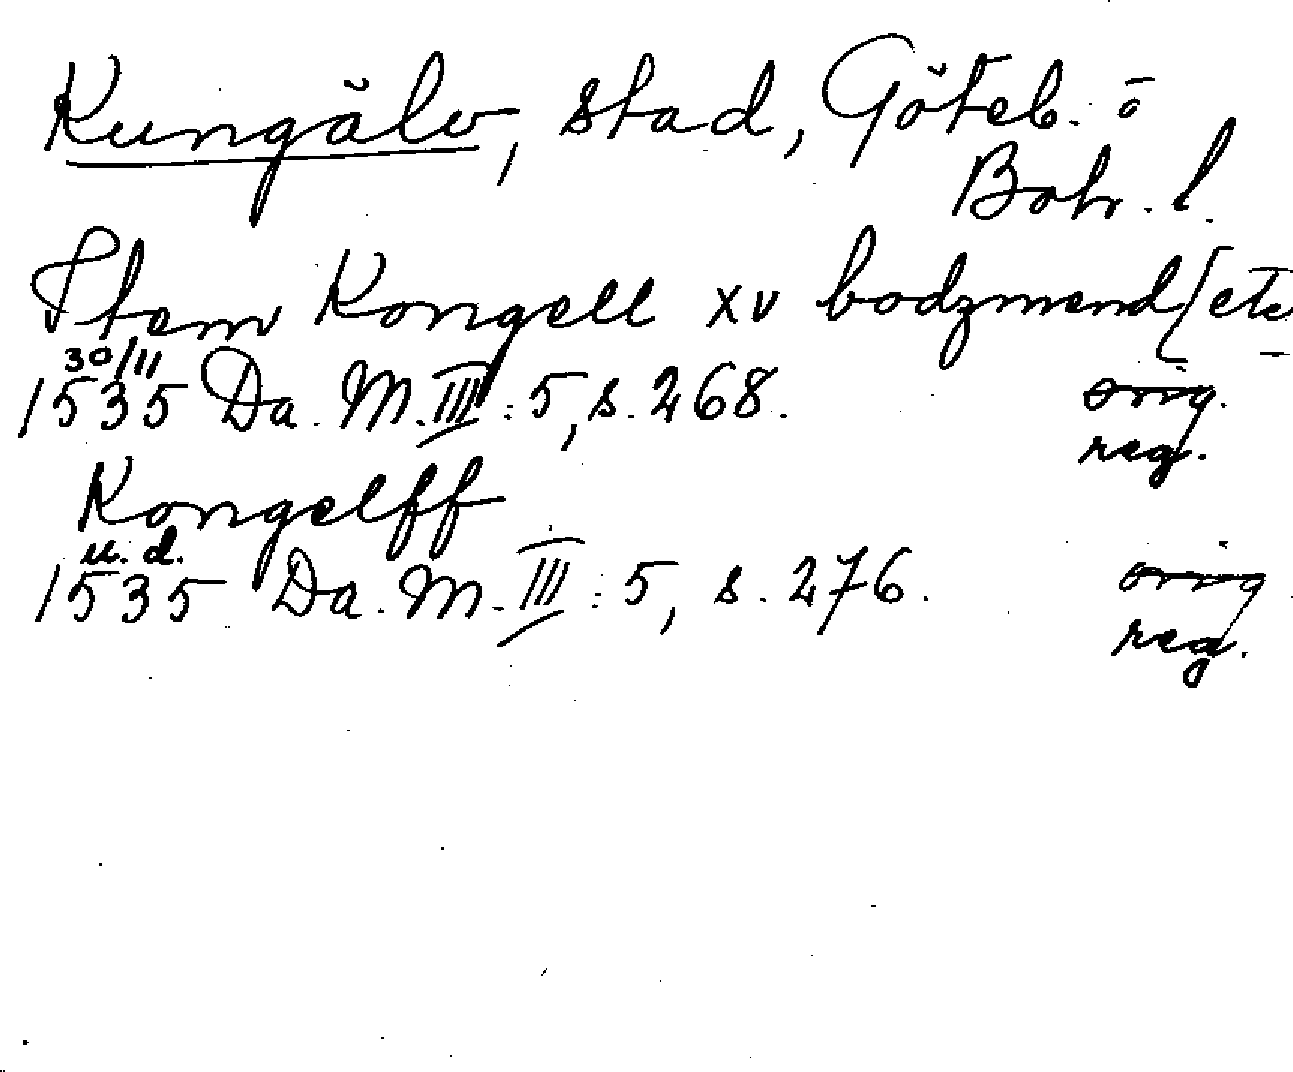 Kungälv, stad, Göteb. o
Boh. l.
Item Kongell xv bodzmend [etc
30/11
1535 Da. M. III: 5, s. 268. orig.
reg.
Kongelff
u. d.
1535 Da. M. III: 5, s. 276. orig
reg.